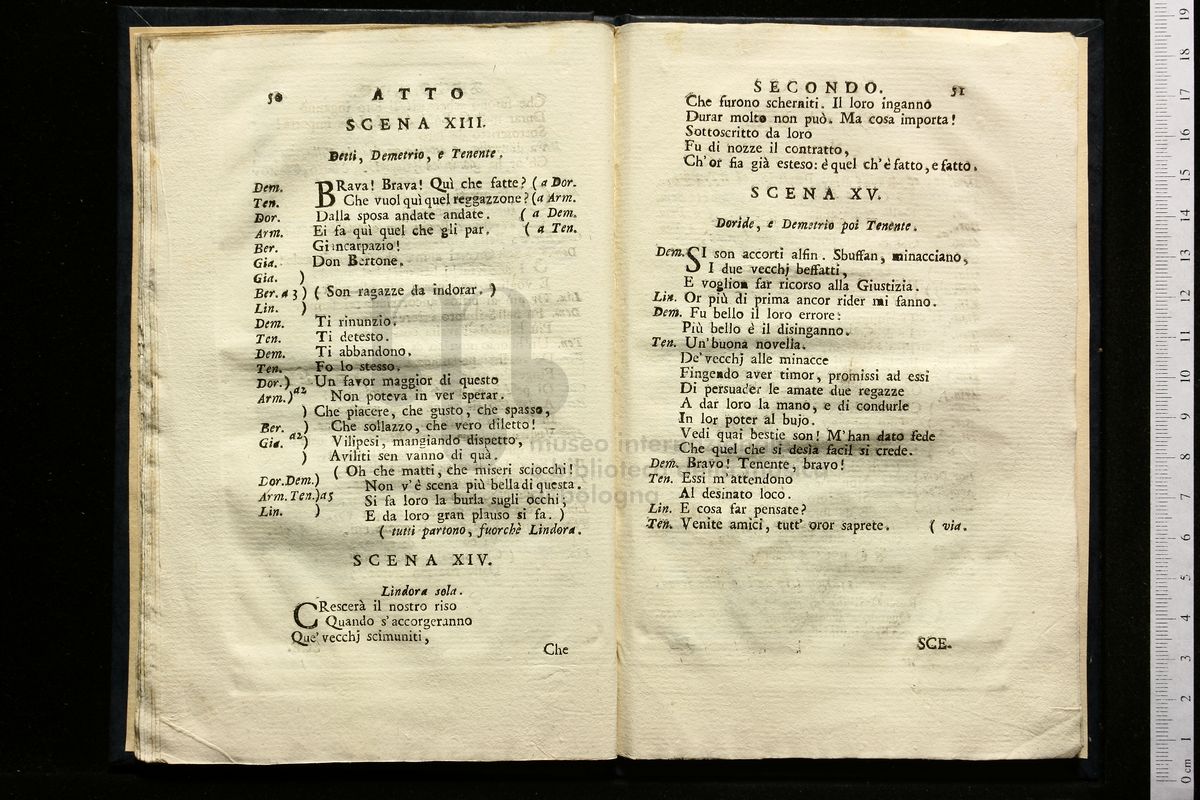 50 ATTO
SCENA XIII.
Detti, Demetrio, e Tenente.
Dem. BRava! Brava! Quì che fatte? ( a Dor.
Ten. Che vuol quì quel reggazzone? (a Arm.
Dor. Dalla sposa andate andate. ( a Dem.
Arm. Ei fa quì quel che gli par. ( a Ten.
Ber. Giincarpazio!
Gia. Don Bertone.
Gia. )
Ber. a 3 ) ( Son ragazze da indorar. )
Lin. )
Dem. Ti rinunzio.
Ten. Ti detesto.
Dem. Ti abbandono.
Ten. Fo lo stesso.
Dor.) Un favor maggior di questo
Arm.) a2 Non poteva in ver sperar.
) Che piacere, che gusto, che spasso,
Ber. ) Che sollazzo, che vero diletto!
Gia. a2 ) Vilipesi, mangiando dispetto,
) Aviliti sen vanno di quà.
( Oh che matti, che miseri sciocchi!
Dor.Dem.) Non v'è scena più bella di questa.
Arm.Ten.)a5 Si fa loro la burla sugli occhi;
Lin. ) E da loro gran plauso si fa. )
( tutti partono, fuorchè Lindora.
SCENA XIV.
Lindora sola.
CRescerà il nostro riso
Quando s'accorgeranno
Que' vecchj scimuniti,
Che
SECONDO. 51
Che furono scherniti. Il loro inganno
Durar molto non può. Ma cosa importa!
Sottoscritto da loro
Fu di nozze il contratto,
Ch'or fia già esteso: è quel ch'è fatto, e fatto.
SCENA XV.
Doride, e Demetrio poi Tenente.
Dem. SI son accorti alfin. Sbuffan, minacciano,
I due vecchj beffatti,
E voglion far ricorso alla Giustizia.
Lin. Or più di prima ancor rider mi fanno.
Dem. Fu bello il loro errore:
Più bello è il disinganno.
Ten. Un'buona novella.
De'vecchj alle minacce
Fingendo aver timor, promissi ad essi
Di persuader le amate due regazze
A dar loro la mano, e di condurle
In lor poter al bujo.
Vedi quai bestie son! M'han dato fede
Che quel che si desìa facil si crede.
Dem. Bravo! Tenente, bravo!
Ten. Essi m'attendono
Al desinato loco.
Lin. E cosa far pensate?
Ten. Venite amici, tutt' oror saprete. ( via.
SCE-
museo
biblioteca
bologna
0 cm 1 2 3 4 5 6 7 8 9 10 11 12 13 14 15 16 17 18 19